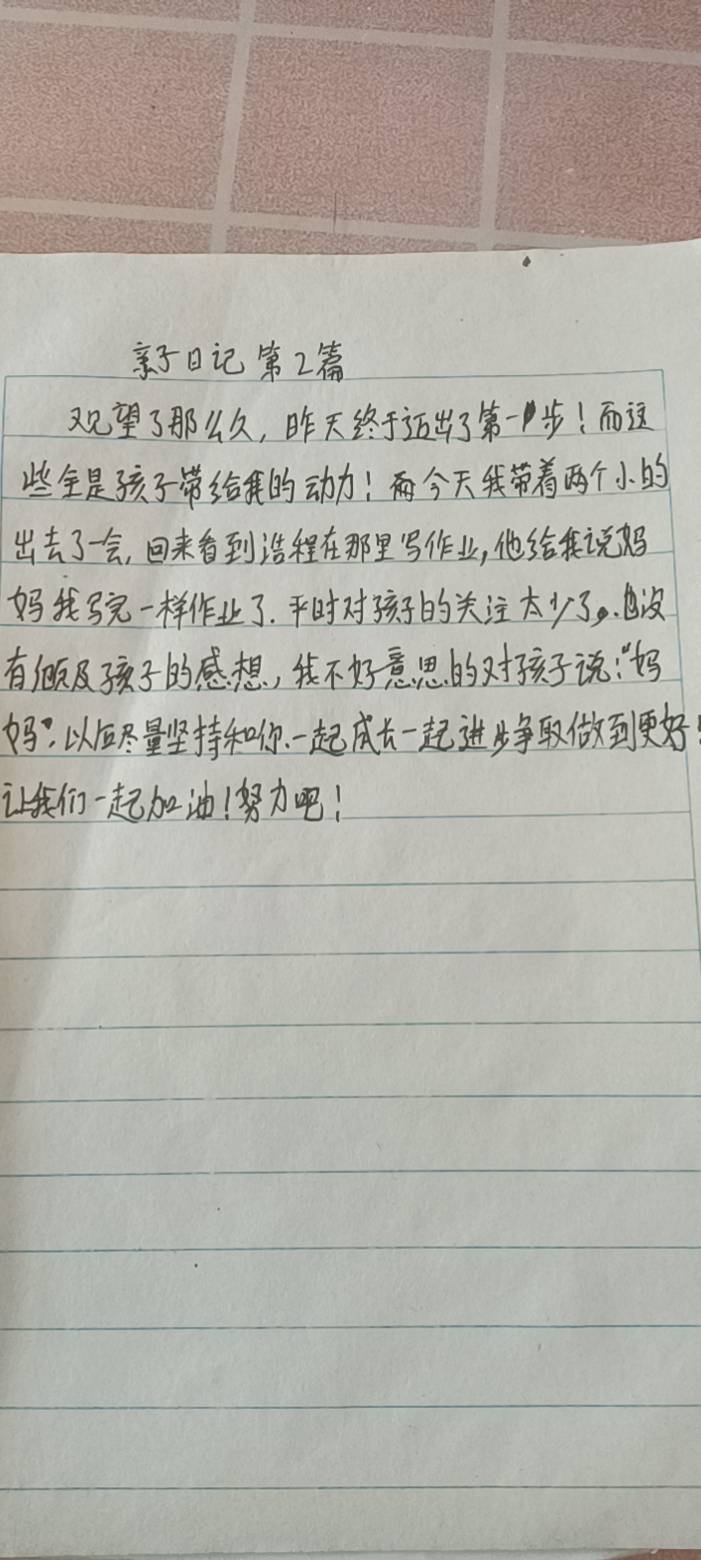 亲子日记第2篇
观望了那么久,昨天终于迈出了第一步!而这
些全是孩子带给我的动力!而今天我带着两个小的
出去了一会,回来看到浩程在那里写作业,他给我说妈
妈我写完一样作业了.平时对孩子的关注太少了,.也没
有顾及孩子的感想,我不好意思的对孩子说:"妈
妈".以后尽量坚持和你.一起成长一起进步争取做到更好!
让我们一起加油!努力吧!